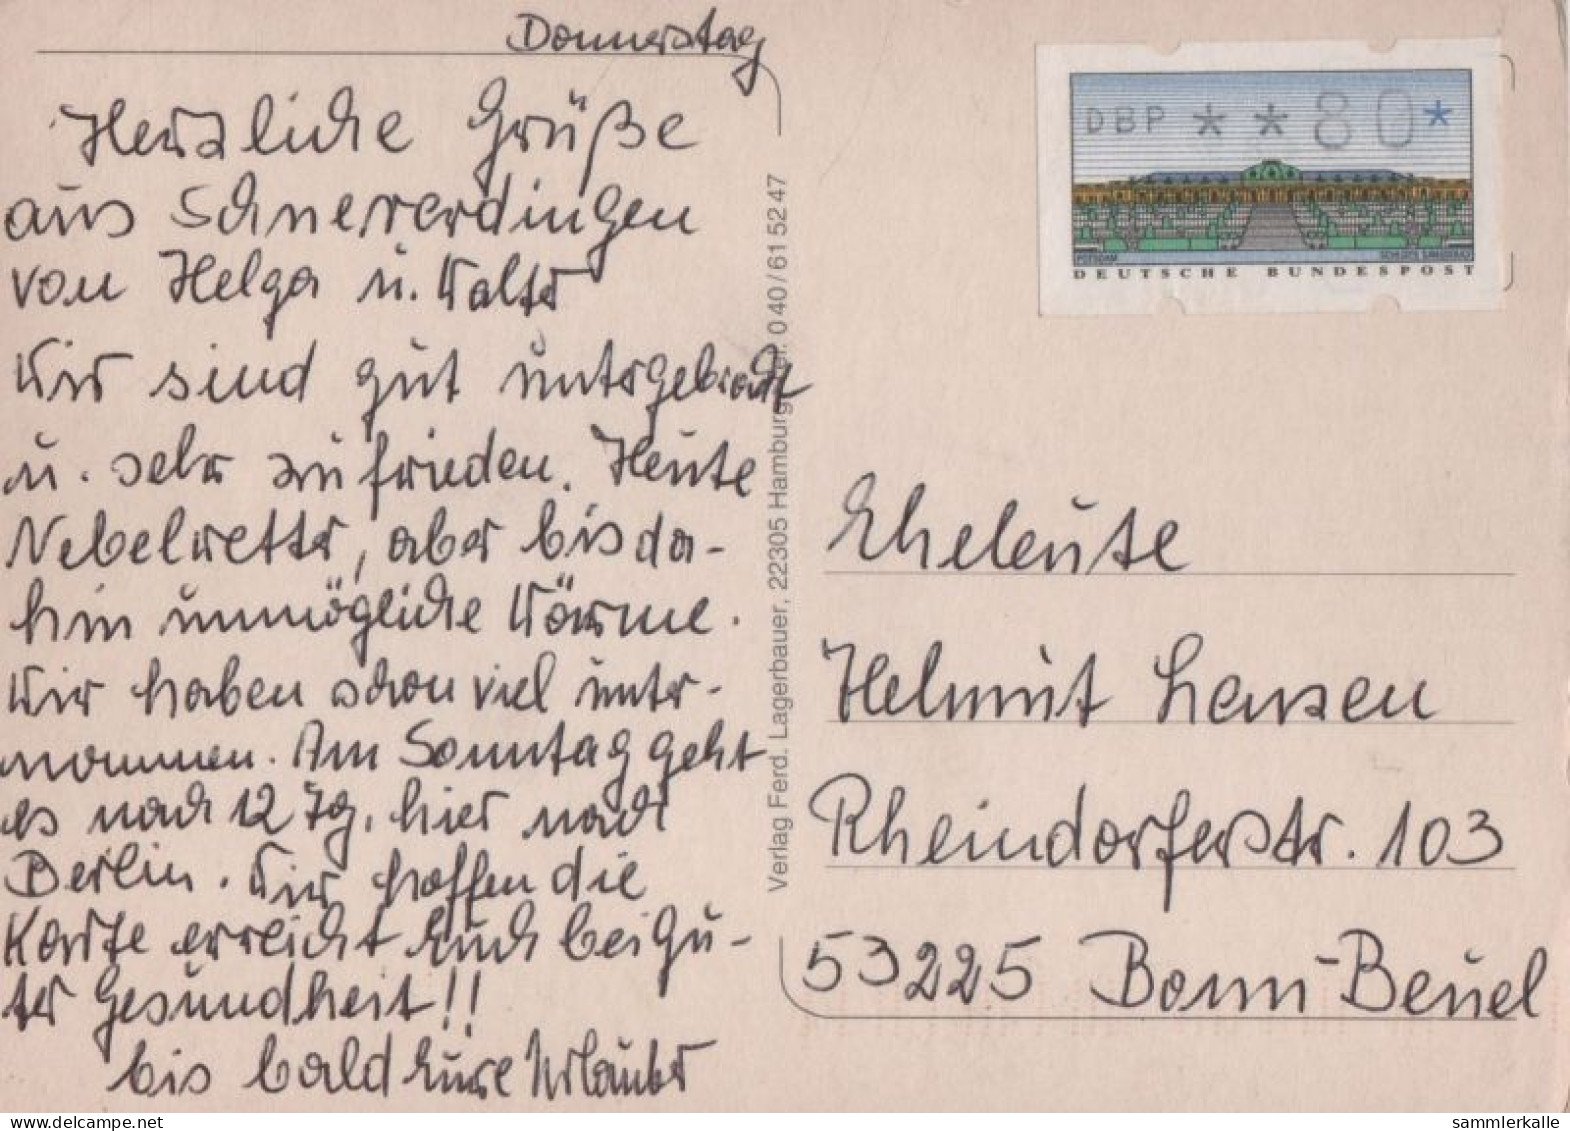 Donnerstag
Herzliche Grüße
aus Schneverdingen
von Helga u. Walter
Wir sind gut untergebracht
u. sehr zufrieden. Heute
Nebelwetter, aber bis da-
hin unmögliche Wärme.
Wir haben schon viel unter-
nommen. Am Sonntag geht
es nach 12 Tg. hier nach
Berlin. Wir hoffen die
Karte erreicht Euch bei Gu-
ter Gesundheit!!
bis bald Eure Urlauber
Verlag Ferd. Lagerbauer, 22305 Hamburg, Tel. 0 40 / 61 52 47
DBP **80*
POTSDAM SCHLOSS SANSSOUCI
DEUTSCHE BUNDESPOST
Eheleute
Helmut Lensen
Rheindorferstr. 103
53225 Bonn-Beuel
www.delcampe.net
sammlerkalle